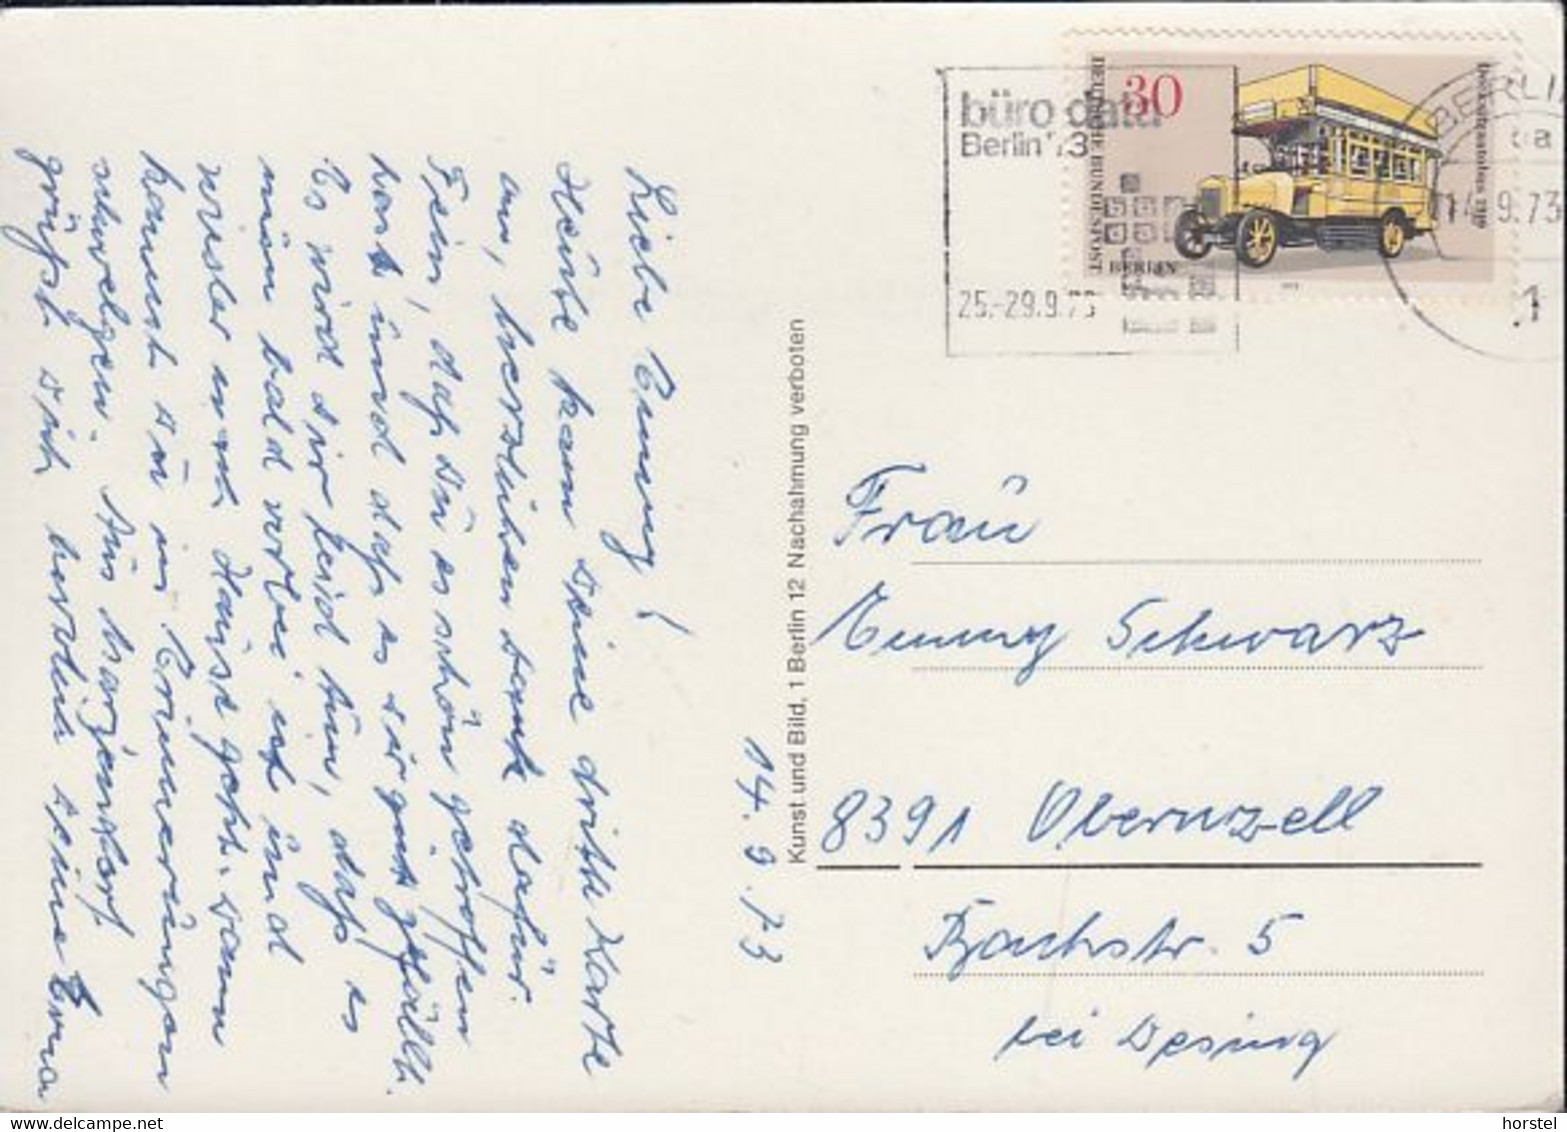 Liebe Emmy!
Heute kam deine dritte Karte
an, herzlichen Dank dafür.
Fein, daß du es schön getroffen
hast und daß es dir gut gefällt.
Es wird dir leid tun, daß es
nun bald vorbei ist und
wieder nach Hause geht. Dann
kannst du in Erinnerungen
schwelgen. Aus Marienstorf
grüßt dich herzlich deine Erna
14.9.73
Kunst und Bild, 1 Berlin 12 Nachahmung verboten
büro data
Berlin '73
25.-29.9.73
30
DEUTSCHE BUNDESPOST
BERLIN
Decksitzautobus 1919
1973
BERLIN
14.9.73
1
Frau
Emmy Schwarz
8391 Obernzell
Bachstr. 5
bei Desing
horstel